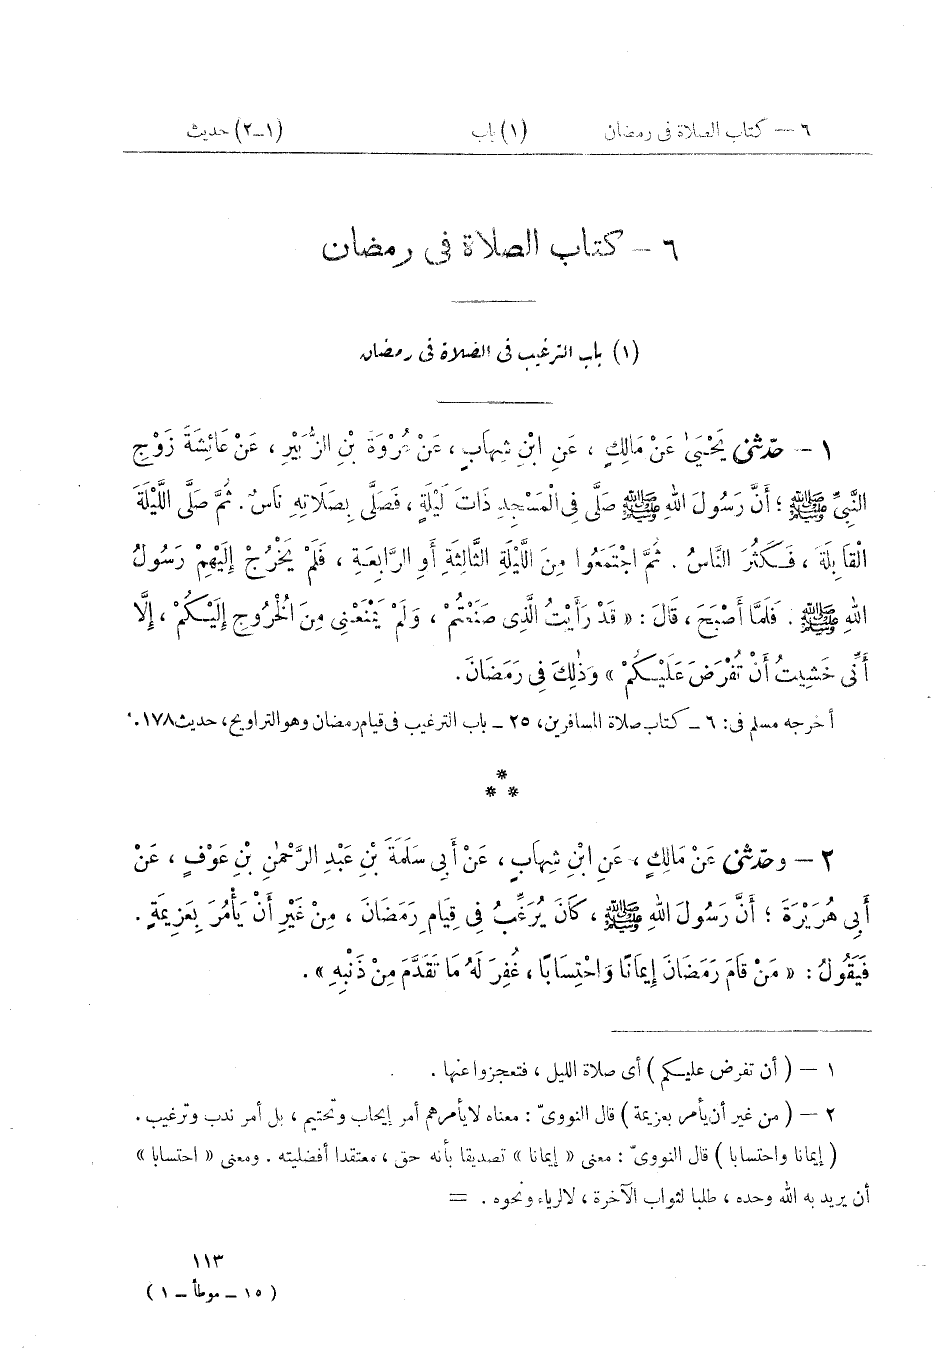 ٦ — كتاب الصلاة فى رمضان (١) باب (١-٢) حديث
٦ – كتاب الصلاة فى رمضان
(١) باب الترغيب فى الصلاة فى رمضان
١ – حَدَّثَنِى يَحْيَىٰ عَنْ مَالِكٍ ، عَنِ ابْنِ شِهَابٍ ، عَنْ عُرْوَةَ بْنِ الزُّبَيْرِ ، عَنْ عَائِشَةَ زَوْجِ
النَّبِىِّ ﷺ ؛ أَنَّ رَسُولَ اللهِ ﷺ صَلَّى فِى الْمَسْجِدِ ذَاتَ لَيْلَةٍ ، فَصَلَّى بِصَلَاتِهِ نَاسٌ . ثُمَّ صَلَّى اللَّيْلَةَ
الْقَابِلَةَ ، فَكَثُرَ النَّاسُ . ثُمَّ اجْتَمَعُوا مِنَ اللَّيْلَةِ الثَّالِثَةِ أَوِ الرَّابِعَةِ ، فَلَمْ يَخْرُجْ إِلَيْهِمْ رَسُولُ
اللهِ ﷺ . فَلَمَّا أَصْبَحَ ، قَالَ : « قَدْ رَأَيْتُ الَّذِى صَنَعْتُمْ ، وَلَمْ يَمْنَعْنِى مِنَ الْخُرُوجِ إِلَيْكُمْ ، إِلَّا
أَنِّى خَشِيتُ أَنْ تُفْرَضَ عَلَيْكُمْ » وَذٰلِكَ فِى رَمَضَانَ .
أخرجه مسلم فى: ٦ – كتاب صلاة المسافرين، ٢٥ – باب الترغيب فى قيام رمضان وهو التراويح، حديث ١٧٨.
*
* *
٢ – وحَدَّثَنِى عَنْ مَالِكٍ ، عَنِ ابْنِ شِهَابٍ ، عَنْ أَبِى سَلَمَةَ بْنِ عَبْدِ الرَّحْمٰنِ بْنِ عَوْفٍ ، عَنْ
أَبِى هُرَيْرَةَ ؛ أَنَّ رَسُولَ اللهِ ﷺ ، كَانَ يُرَغِّبُ فِى قِيَامِ رَمَضَانَ ، مِنْ غَيْرِ أَنْ يَأْمُرَ بِعَزِيمَةٍ .
فَيَقُولُ : « مَنْ قَامَ رَمَضَانَ إِيمَانًا وَاحْتِسَابًا ، غُفِرَ لَهُ مَا تَقَدَّمَ مِنْ ذَنْبِهِ » .
١ – ( أن تفرض عليكم ) أى صلاة الليل ، فتعجزوا عنها .
٢ – ( من غير أن يأمر بعزيمة ) قال النووىّ : معناه لا يأمرهم أمر إيجاب وتحتيم ، بل أمر ندب وترغيب .
( إيمانا واحتسابا ) قال النووىّ : معنى « إيمانا » تصديقا بأنه حق ، معتقدا أفضليته . ومعنى « احتسابا »
أن يريد به الله وحده ، طلبا لثواب الآخرة ، لا لرياء ونحوه . =
١١٣
( ١٥ – موطأ – ١ )